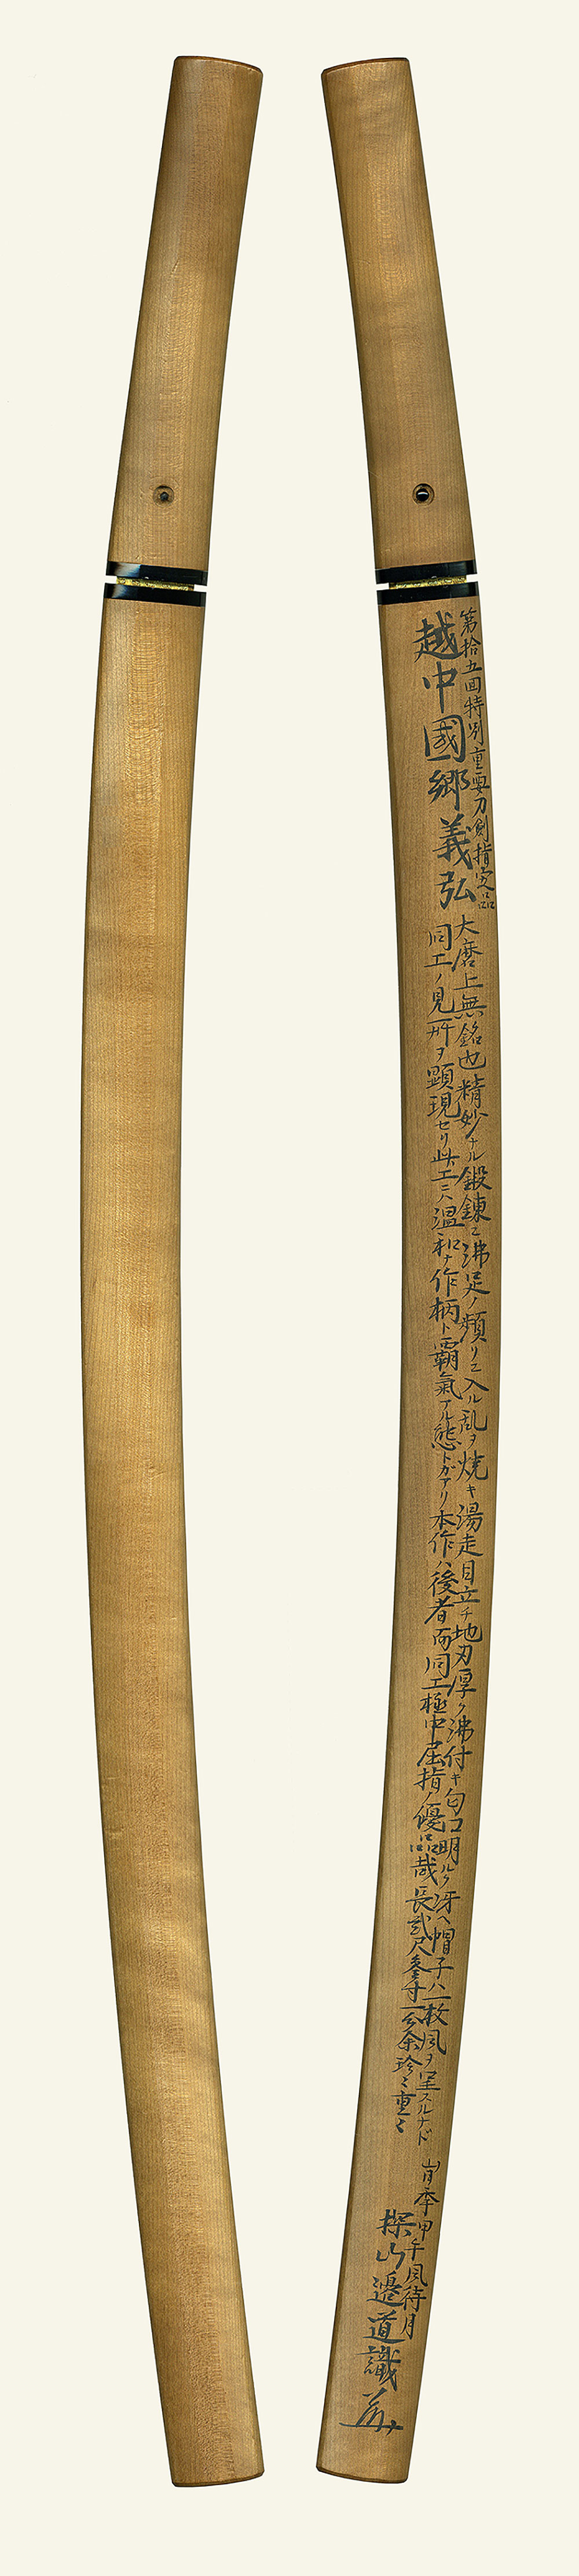 第拾五回特別重要刀剣指定品
越中國郷義弘
大磨上無銘也精妙ナル鍛錬ニ沸足ノ頻リニ入ル乱ヲ焼キ湯走目立チ地刃厚ク沸付キ匂口明ルク冴ヘ帽子ハ一枚風ヲ呈スルナド
同工ノ見所ヲ顕現セリ此工ニハ温和ナ作柄ト覇氣アル態トガアリ本作ハ後者而同工極中屈指ノ優品哉長弐尺参寸一分余珍〻重〻
旹季甲午風待月
探山邉道識